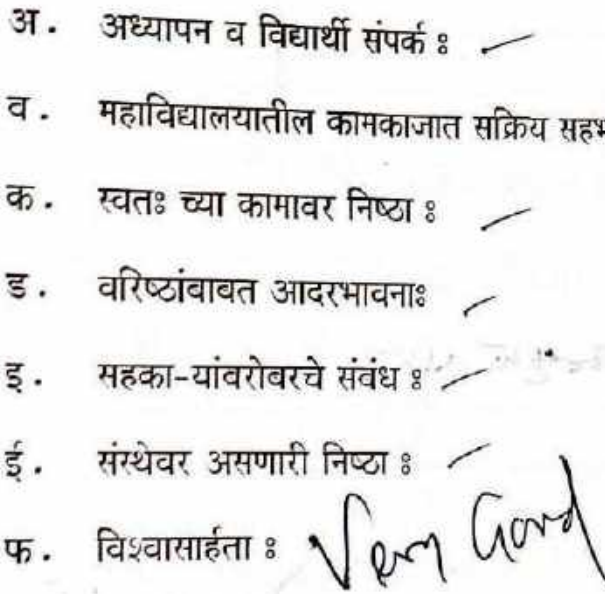 अ. अध्यापन व विद्यार्थी संपर्क :
व. महाविद्यालयातील कामकाजात सक्रिय
क. स्वतः च्या कामावर निष्ठा :
ड. वरिष्ठांबाबत आदरभावनाः
इ. सहका-यांवरोवरचे संवंध :
ई. संस्थेवर असणारी निष्ठा :
फ. विश्वासार्हता : Very Good